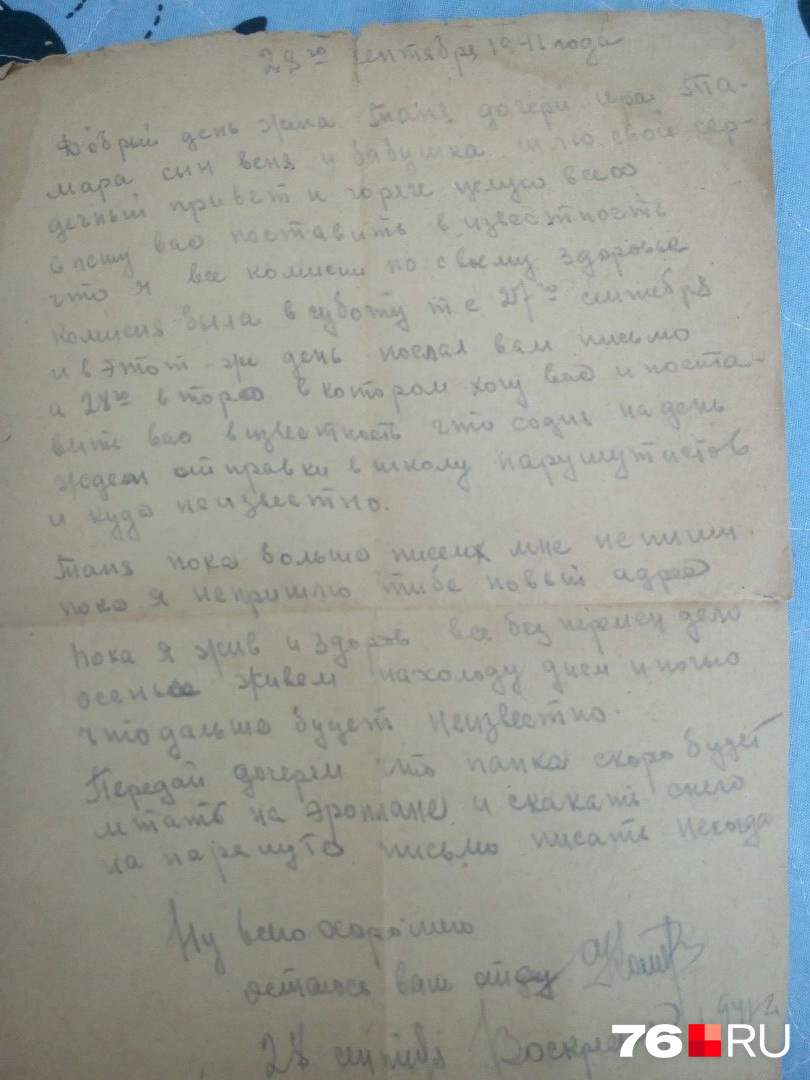 28го сентября 1941 года
Добрый день жена Таня дочери Ира Та-
мара сын Веня и бабушка шлю свой сер-
дечный привет и горяче целую всео
спешу вас поставить в известность
что я все комисии по своему здоровье
комисия была в суботу т е 27го сентября
и в этот-же день послал вам письмо
а 28го второе в котором хочу вас и поста-
вить вас визвестность что содня на день
ждем отправки в школу парушутистов
и куда неизвестно.
Таня пока больше писем мне не пиши
пока я непришлю тибе новый адрес
Пока я жив и здоров все без перемен дело
осенью живем нахолоду днем и ночью
что дальше будет неизвестно.
Передай дочерем что папка скоро будет
летать на эроплане и скакать снего
на парашуте письмо писать некогда
Ну всего хорошего
остаюсь ваш отец
28 сентября Воскресение 1941 г
76.RU